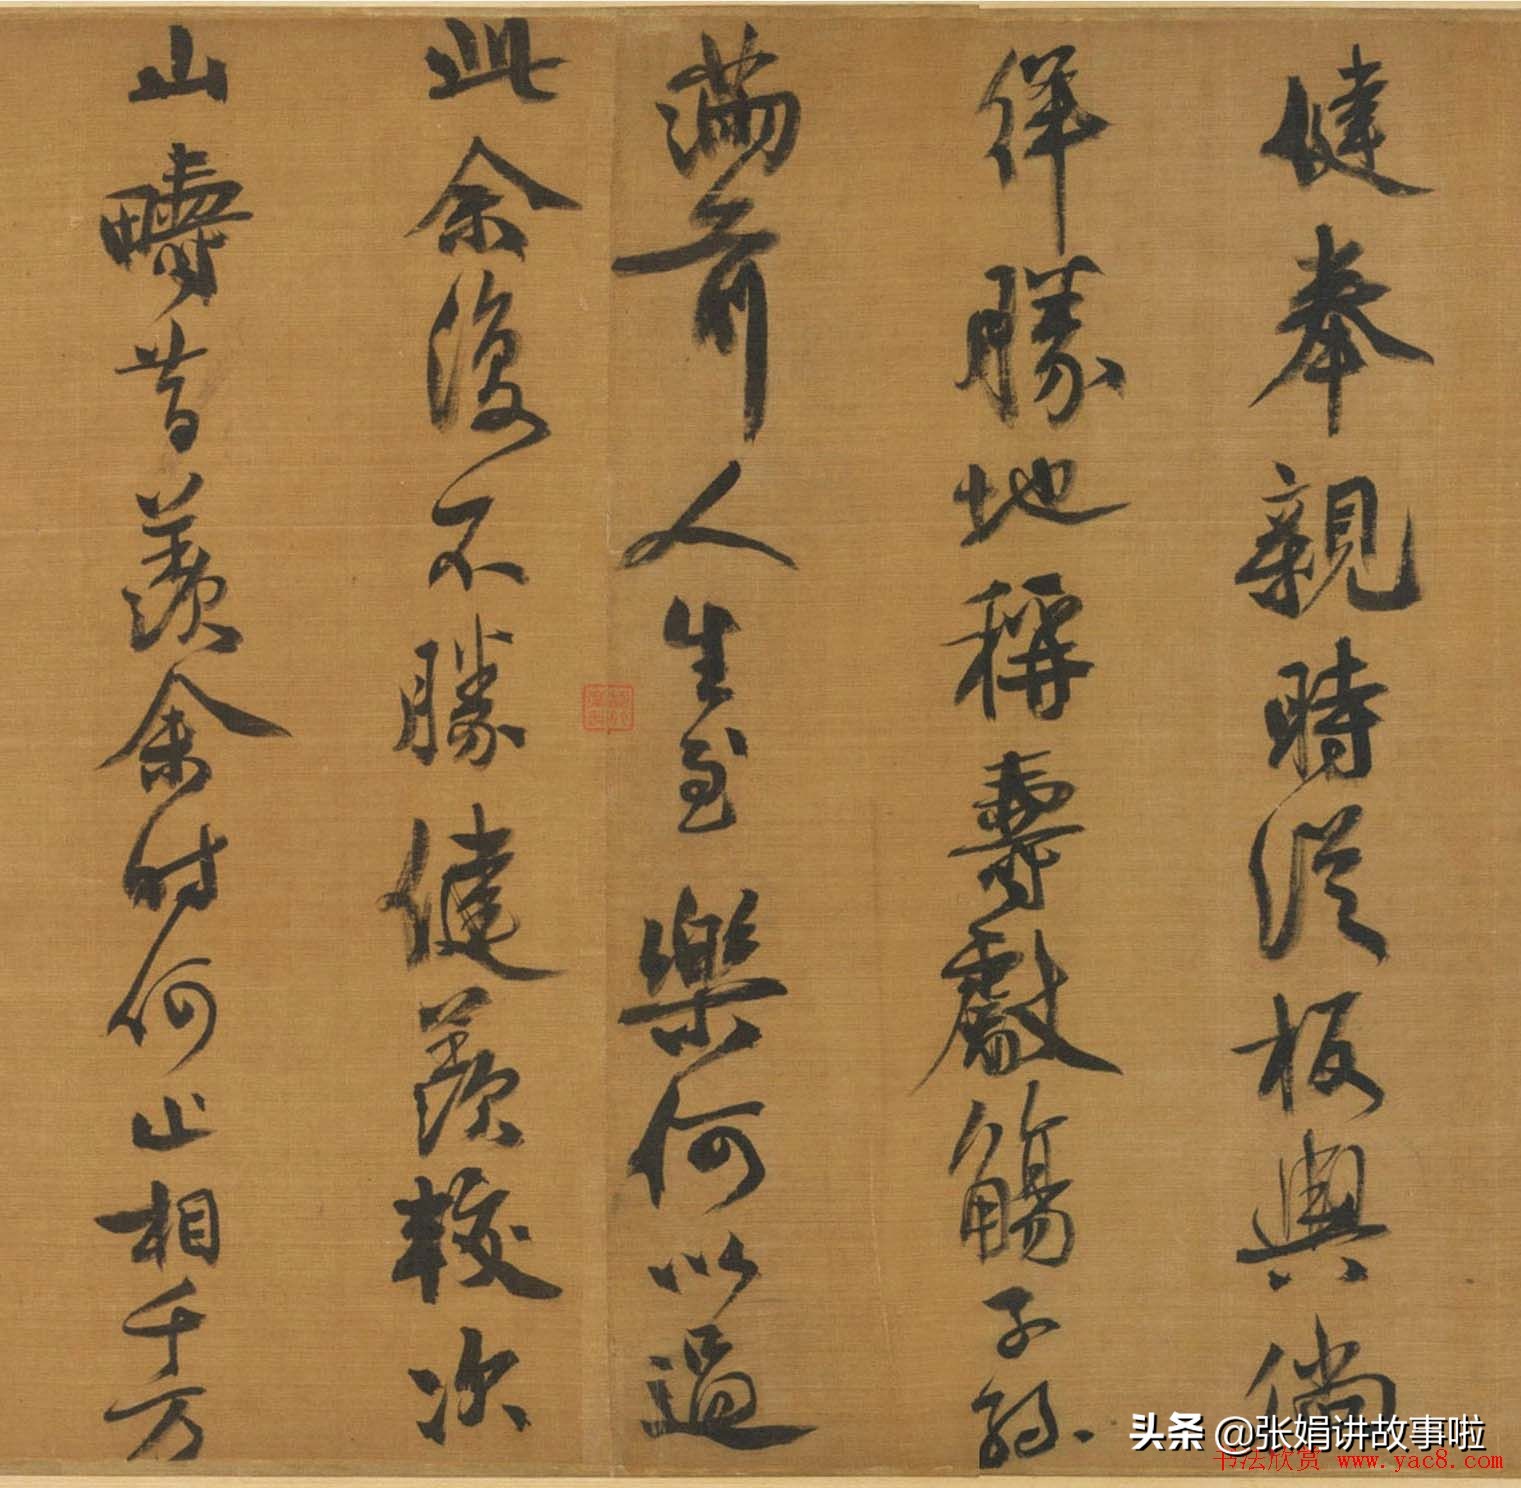 健奉親時從板輿倘
佯勝地稱壽獻觴子孫
滿前人生至樂何以過
此余復不勝健羨較次
山疇昔羨余時何止相千万
头条 @张娟讲故事啦
书法欣赏 www.yac8.com